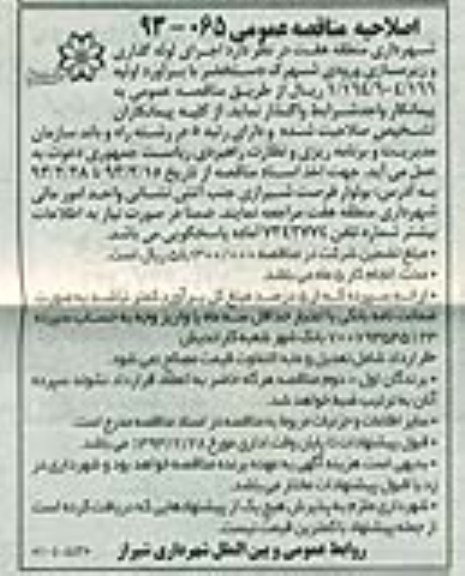 اصلاحیه مناقصه عمومی ۰۶۵ - ۹۳
شهرداری منطقه هفت در نظر دارد اجرای لوله گذاری
و زیرسازی ورودی شهرک دستخضر با برآورد اولیه
ریال از طریق مناقصه عمومی به
پیمانکار واجد شرایط واگذار نماید. از کلیه پیمانکاران
تشخیص صلاحیت شده و دارای رتبه ۵ در رشته راه و باند سازمان
مدیریت و برنامه ریزی و نظارت راهبردی ریاست جمهوری دعوت به
عمل می آید. جهت اخذ اسناد مناقصه از تاریخ ۹۳/۲/۱۵ تا ۹۳/۲/۲۸
به آدرس: بولوار فرصت شیرازی جنب آتش نشانی واحد امور مالی
شهرداری منطقه هفت مراجعه نمایند. ضمنا در صورت نیاز به اطلاعات
بیشتر شماره تلفن ۷۳۴۳۷۷۴ آماده پاسخگویی می باشد.
• مبلغ تضمین شرکت در مناقصه ۵۸/۳۰۰/۰۰۰ ریال است.
• مدت انجام کار ۵ ماه می باشد.
• ارائه سپرده که از ۵ درصد مبلغ کل برآورد کمتر نباشد به صورت
ضمانت نامه بانکی با اعتبار حداقل سه ماه یا واریز وجه به حساب سپرده
بانک شهر شعبه
قرارداد شامل تعدیل و مابه التفاوت قیمت مصالح نمی شود.
• برندگان اول، دوم مناقصه هرگاه حاضر به انعقاد قرارداد نشوند سپرده
آنان به ترتیب ضبط خواهد شد.
• سایر اطلاعات و جزئیات مربوط به مناقصه در اسناد مناقصه مندرج است.
• قبول پیشنهادات تا پایان وقت اداری مورخ ۱۳۹۳/۲/۲۸ می باشد.
• بدیهی است هزینه آگهی به عهده برنده مناقصه خواهد بود و شهرداری در
رد یا قبول پیشنهادات مختار می باشد.
• شهرداری ملزم به پذیرش هیچ یک از پیشنهادهایی که دریافت کرده است
از جمله پیشنهاد با کمترین قیمت نیست.
روابط عمومی و بین الملل شهرداری شیراز